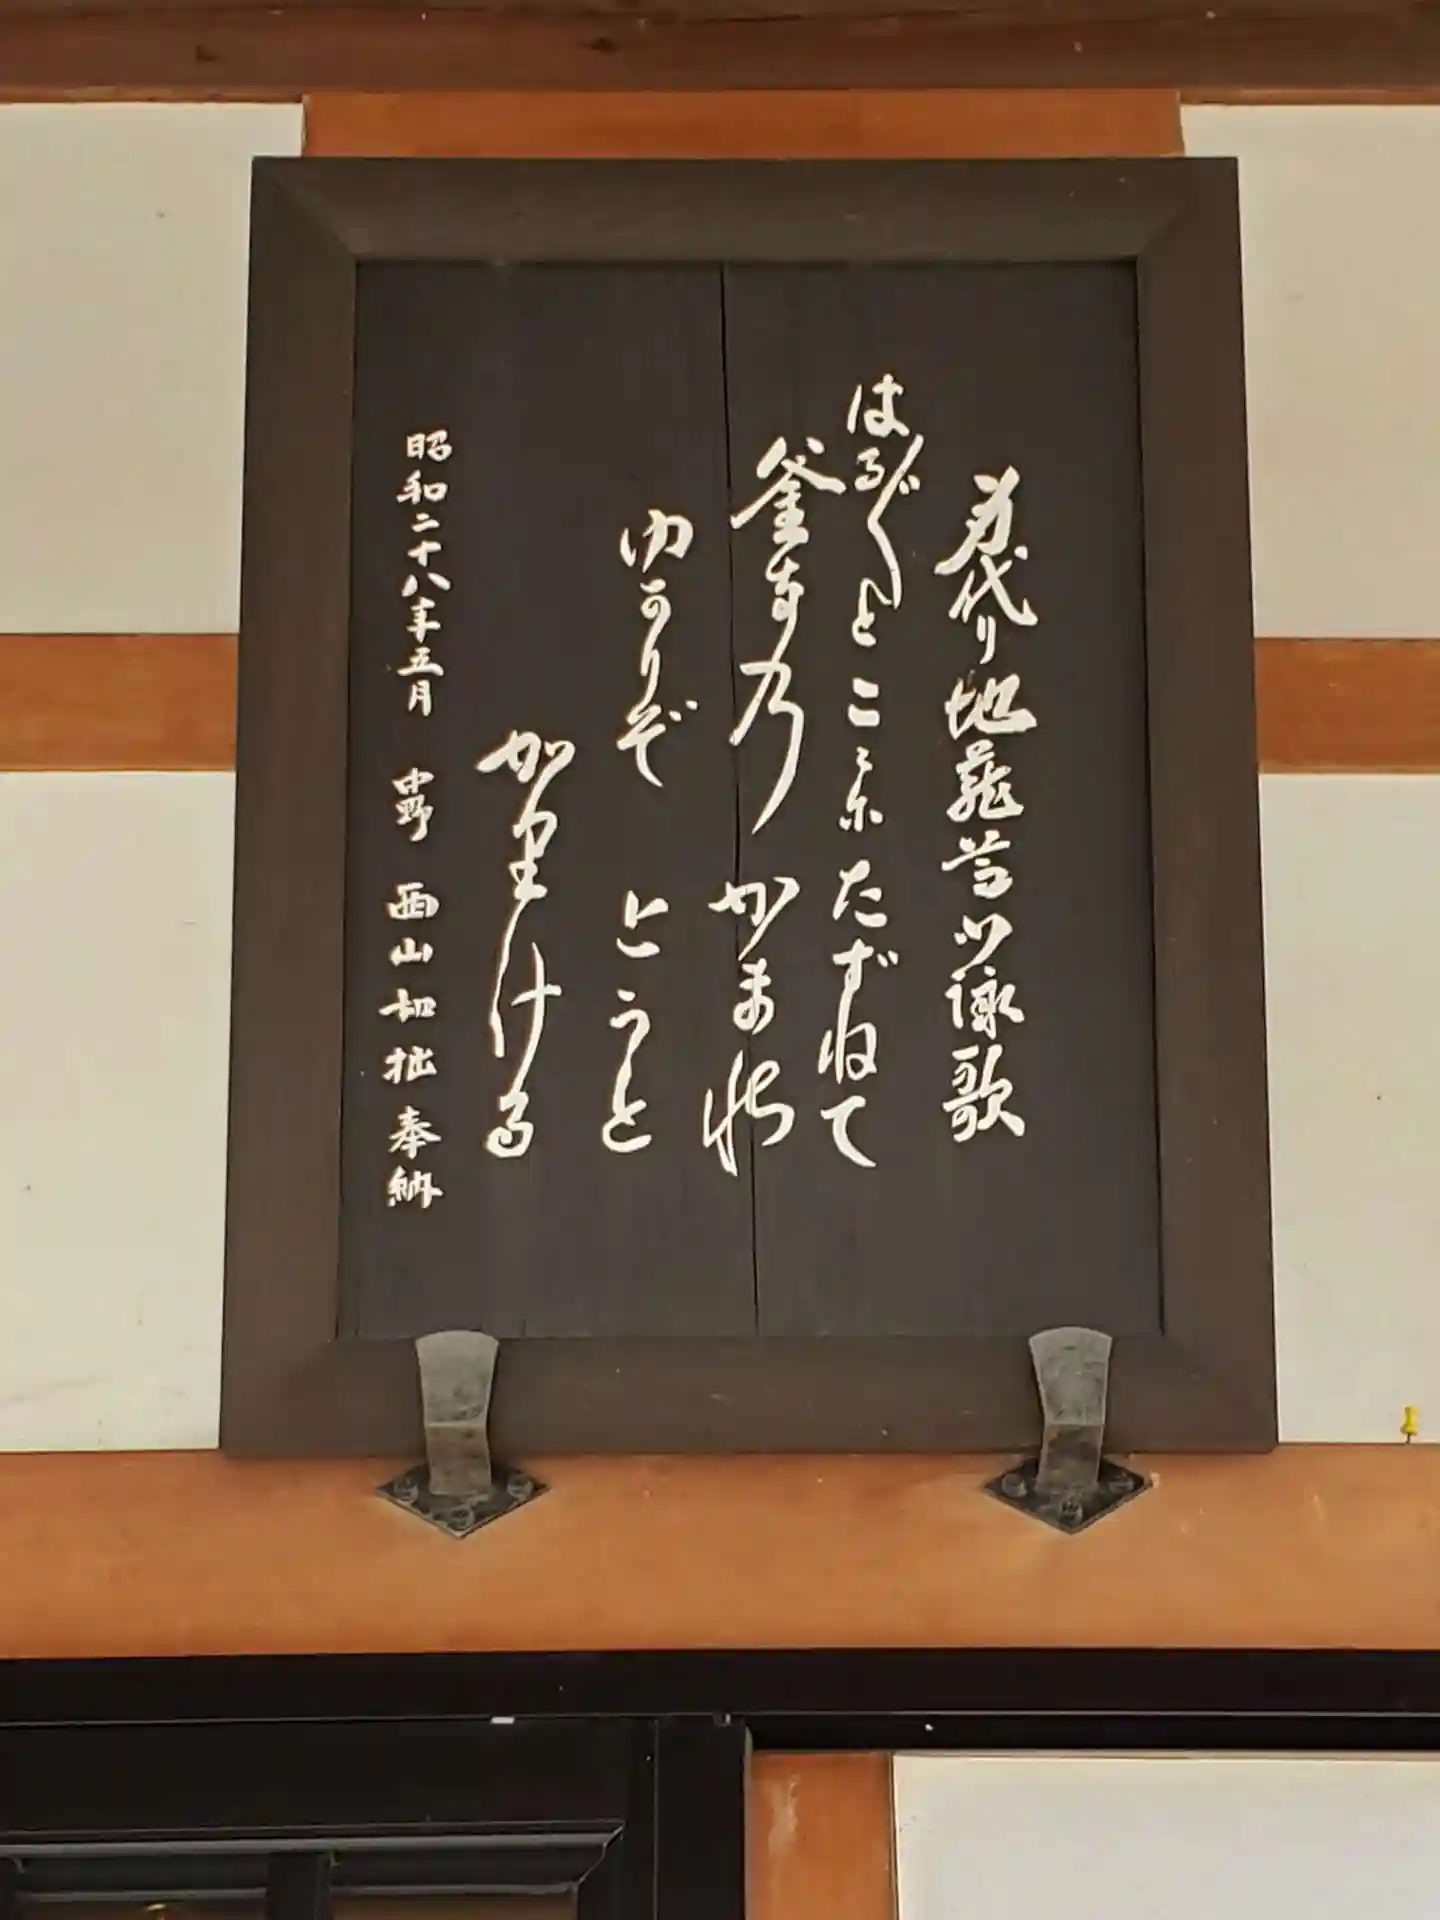 身代り地蔵尊御詠歌
はるぐとこゝにたずねて
釜す乃かま
ゆかりぞとうと
かりける
昭和二十八年五月 中野 西山 拙奉納